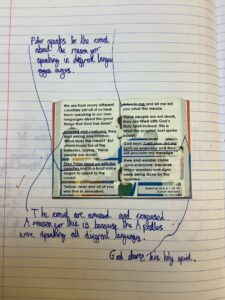 Peter speaks to the crowd
about the reason for
speaking in different
We are from many different
countries yet all of us hear
them speaking in our own
languages about the great
things that God has done!
Amazed and confused, they
kept asking one another,
What does this mean? But
others made fun of the
believers, saying, These
people are drunk!
Then Peter stood up with the
apostles and in a loud voice
began to speak to the
crowd:
Fellow Jews and all of you
who live in Jerusalem,
listen to me and let me tell
you what this means.
These people are not drunk,
they are filled with God's
Holy Spirit. Instead, this is
what the prophet Joel spoke
about:
God says: I will pour out my
spirit on everyone and they
will proclaim my message.
Awe and wonder came
upon everyone, because
many wonders and signs
were being done by the
apostles.
The crowd are amased and confused.
A reason for this is because the Apostles
were speaking all different languages.
God shows his holy spirit.